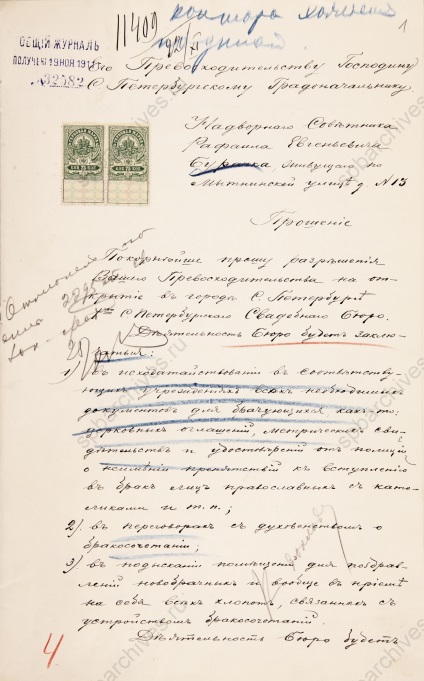 11409
контора
1
ОБЩІЙ ЖУРНАЛЪ
ПОЛУЧЕНО 19 НОЯ 191
№32582
Его Превосходительству Господину
С. Петербургскому Градоначальнику
Надворнаго Совѣтника
Рафаила Евгеньевича
Бурачка, живущаго по
Мытнинской улицѣ д. № 13
Прошеніе
Покорнѣйше прошу разрѣшенія
Вашего Превосходительства на от-
крытіе въ городѣ С. Петербургѣ
С. Петербургскаго Свадебнаго Бюро.
Дѣятельность Бюро будетъ заклю-
чаться:
1) въ исходатайствованіи въ соотвѣтству-
ющихъ учрежденіяхъ всѣхъ необходимыхъ
документовъ для брачующихся какъ то:
церковныхъ оглашеній, метрическихъ сви-
дѣтельствъ и удостовѣреній отъ полиціи
о неимѣніи препятствій къ вступленію
въ бракъ лицъ православныхъ съ като-
ликами и т. п.;
2) въ переговорахъ съ духовенствомъ о
бракосочетаніи;
3) въ подысканіи помѣщенія для поздрав-
леній новобрачныхъ и вообще въ пріемѣ
на себя всѣхъ хлопотъ, связанныхъ съ
устройствомъ бракосочетаній.
Дѣятельность Бюро будетъ
4
spbarchives.ru